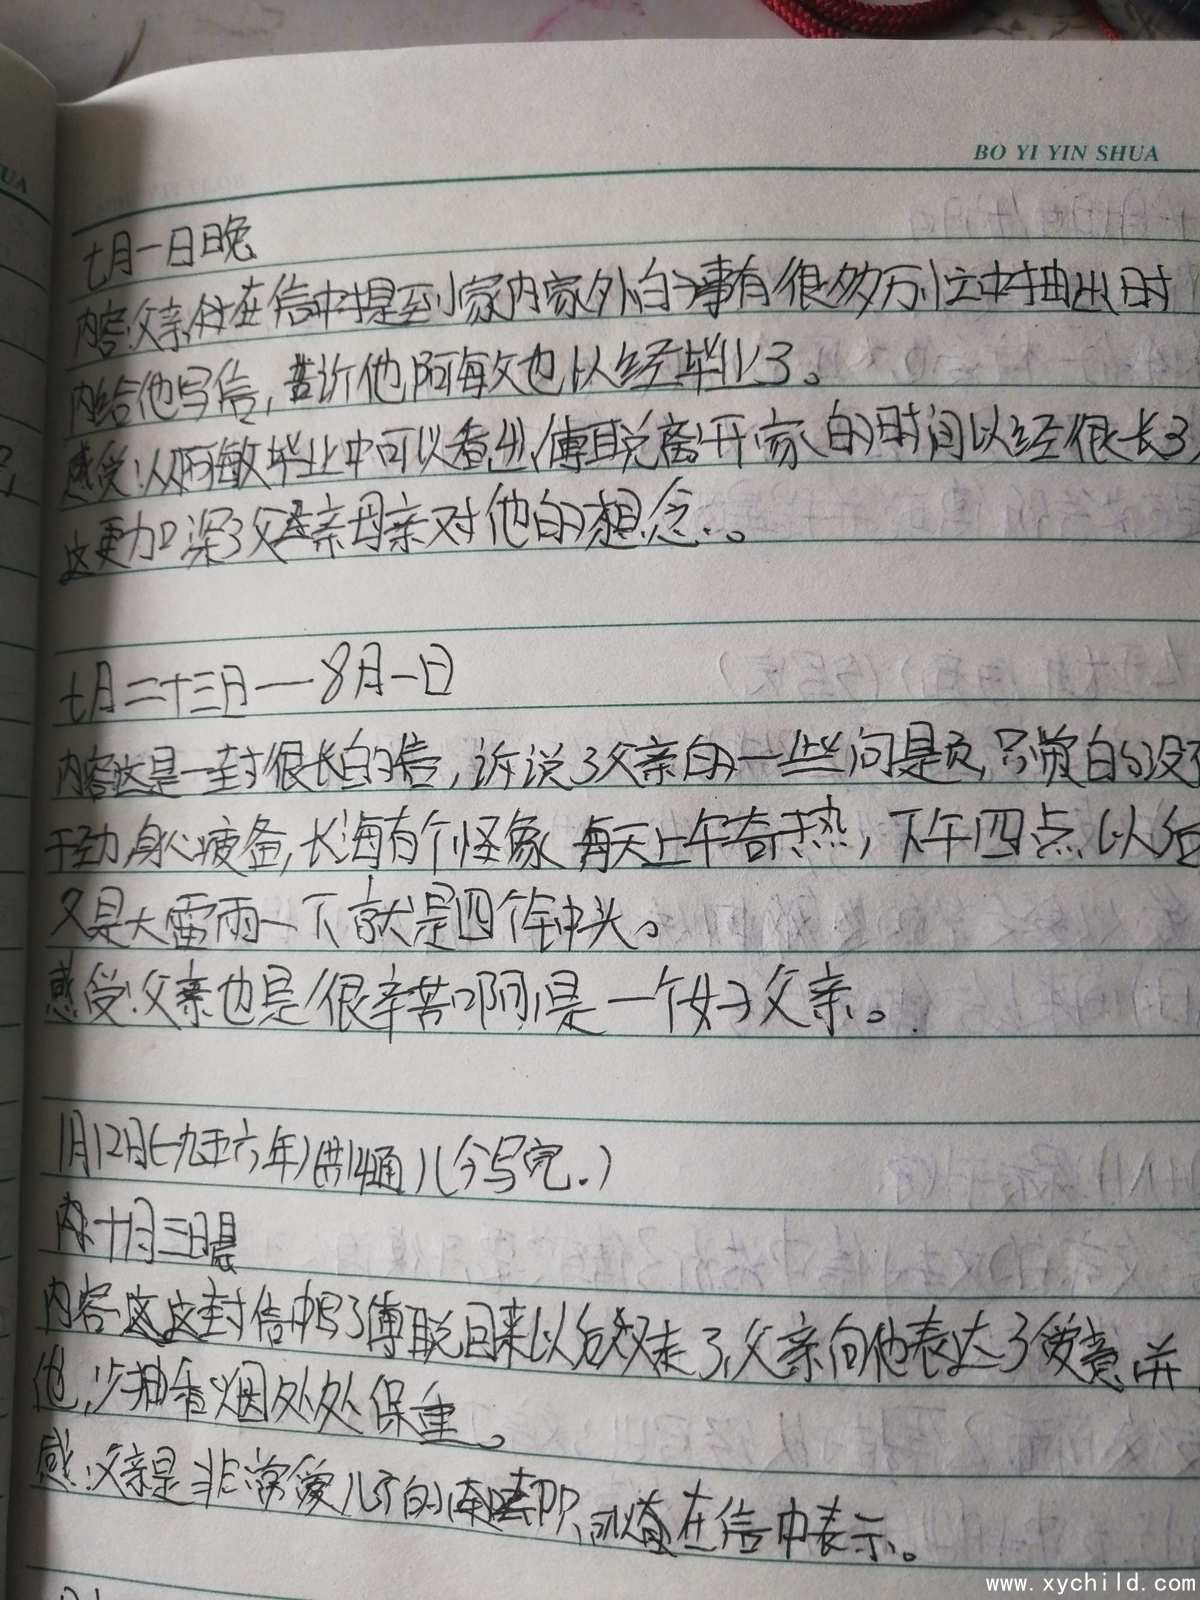 BO YI YIN SHUA
七月一日晚
内容:父亲在信中提到家内家外的事有很多万忙中抽出时
内给他写信,告诉他阿敏也以经毕业了。
感受:从阿敏毕业中可以看出傅聪离开家的时间以经很长了,
这更加深了父亲母亲对他的想念.。
七月二十三日——8月一日
内容这是一封很长的信,诉说了父亲的一些问题,只觉的没
干劲,身心疲备,长海有个怪象每天上午奇热,下午四点以后
又是大雷雨一下就是四个钟头。
感受:父亲也是很辛苦啊是一个好父亲。
1月12日(一九五六年)(共14通)(今写完.)
十月三日晨
内容这封信中写了傅聪回来以后又走了,父亲向他表达了爱意,并
他,少抽香烟处处保重。
感:父亲是非常爱儿子的在信中表示。
www.xychild.com